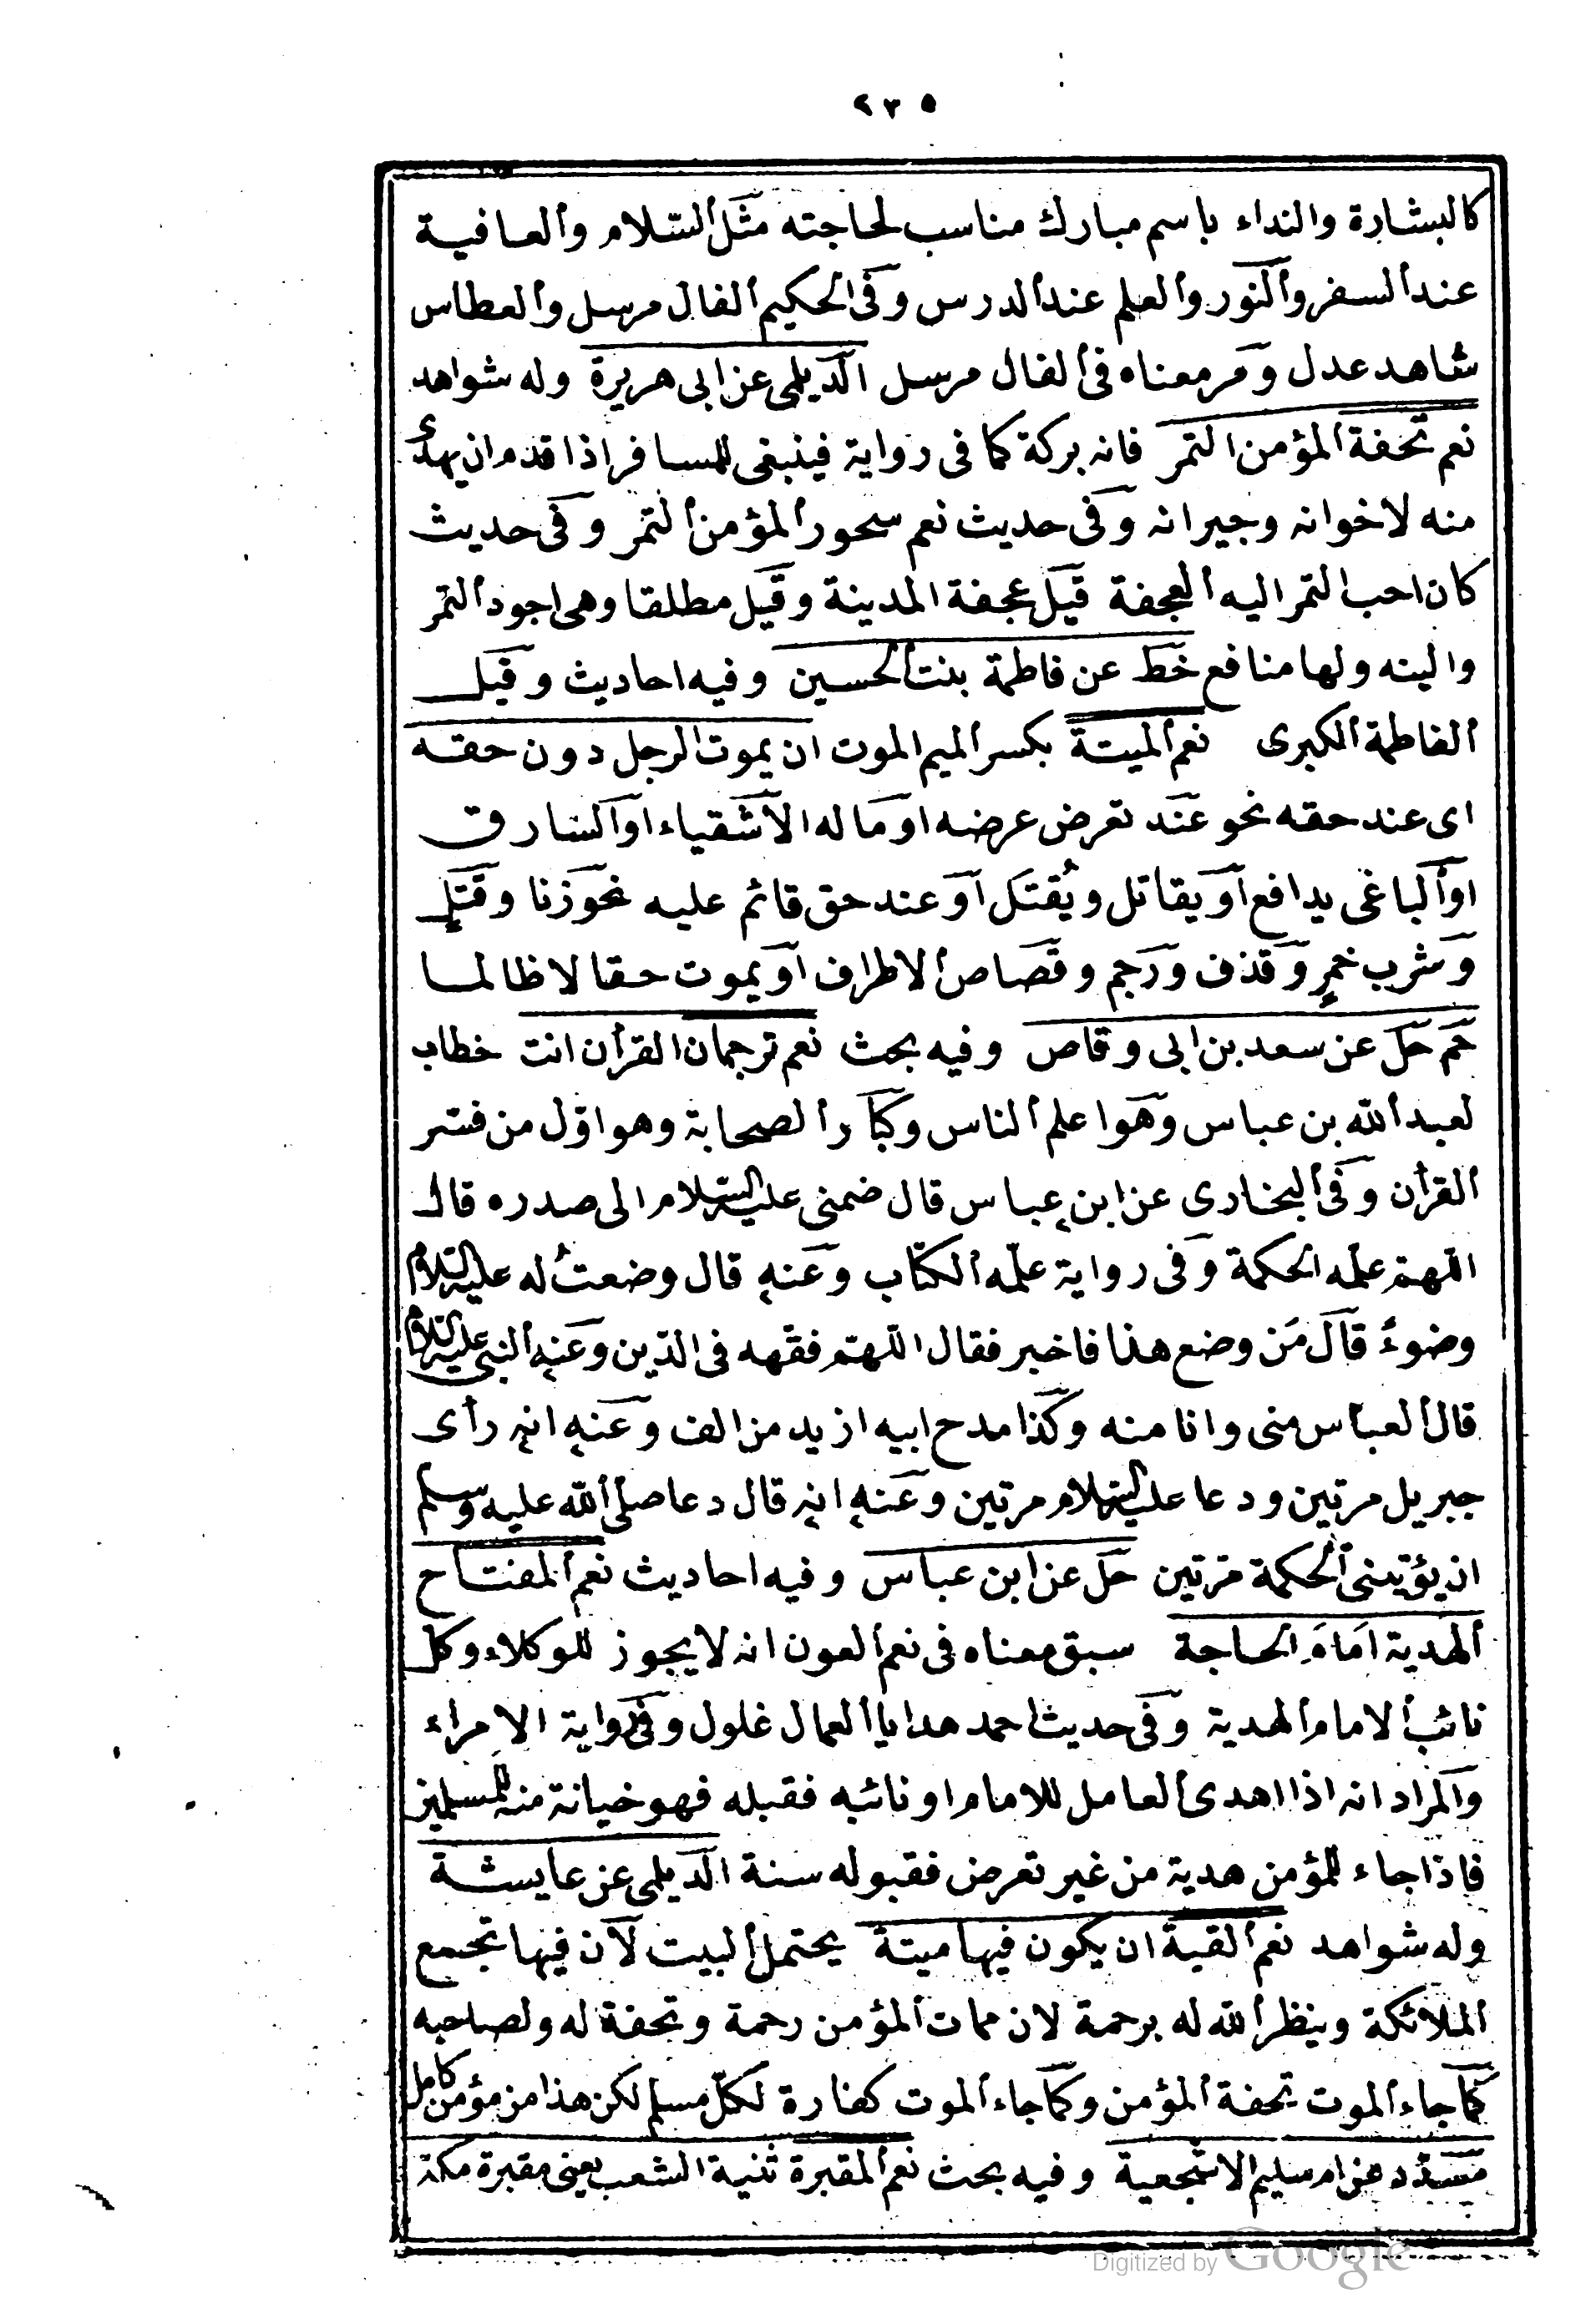 ٢٣٥
كالبشارة والنداء باسم مبارك مناسب لحاجته مثل السلام والعافية
عند السفر والنور والعلم عند الدرس وفى الحكيم الفال مرسل والعطاس
شاهد عدل ومر معناه فى الفال مرسل الديلمى عن ابى هريرة وله شواهد
نعم تحفة المؤمن التمر فانه بركة كما فى رواية فينبغى للمسافر اذا قدم ان يهدى
منه لاخوانه وجيرانه وفى حديث نعم سحور المؤمن التمر وفى حديث
كان احب التمر اليه العجفة قيل عجفة المدينة وقيل مطلقا وهى اجود التمر
والينه ولها منافع خط عن فاطمة بنت الحسين وفيه احاديث وقيل
الفاطمة الكبرى نعم الميتة بكسر الميم الموت ان يموت الرجل دون حقه
اى عند حقه نحو عند تعرض عرضه او ماله الاشقياء او السارق
او الباغى يدافع او يقاتل ويُقتَل او عند حق قائم عليه نحو زنا وقتلٍ
وشرب خمرٍ وقذف ورجم وقصاص الاطراف او يموت حقا لا ظالما
حم حل عن سعد بن ابى وقاص وفيه بحث نعم ترجمان القرأن انت خطاب
لعبد الله بن عباس وهو اعلم الناس وكبار الصحابة وهو اوّل من فسّر
القرأن وفى البخارى عن ابن عباس قال ضمنى عليه السلام الى صدره قال
اللهم علّمه الحكمة وفى رواية علّمه الكتاب وعنه قال وضعتُ له عليه السلام
وضوءً قال مَن وضع هذا فاخبر فقال اللهم فقّهه فى الدّين وعنه النبى عليه السلام
قال العباس منى وانا منه وكذا مدح ابيه ازيد من الف وعنه انه رأى
جبريل مرتين ودعا عليه السلام مرتين وعنه انه قال دعا صلى الله عليه وسلم
ان يؤتينى الحكمة مرتين حل عن ابن عباس وفيه احاديث نعم المفتاح
الهدية امَامَ الحاجة سبق معناه فى نعم العون انه لا يجوز للوكلاء وكل
نائب الامام الهدية وفى حديث احمد هدايا العمال غلول وفى رواية الامراء
والمراد انه اذا اهدى العامل للامام او نائبه فقبله فهو خيانة منه للمسلمين
فاذا جاء للمؤمن هدية من غير تعرض فقبوله سنة الديلمى عن عايشة
وله شواهد نعم القبة ان يكون فيها ميتة يحتمل البيت لان فيها تجمع
الملائكة وينظر الله له برحمة لان ممات المؤمن رحمة وتحفة له ولصاحبه
كما جاء الموت تحفة المؤمن وكما جاء الموت كفارة لكل مسلم لكن هذا من مؤمن كامل
مسدّد عن ام سليم الاشجعية وفيه بحث نعم المقبرة ثنية الشعب يعنى مقبرة مكة
Digitized by Google